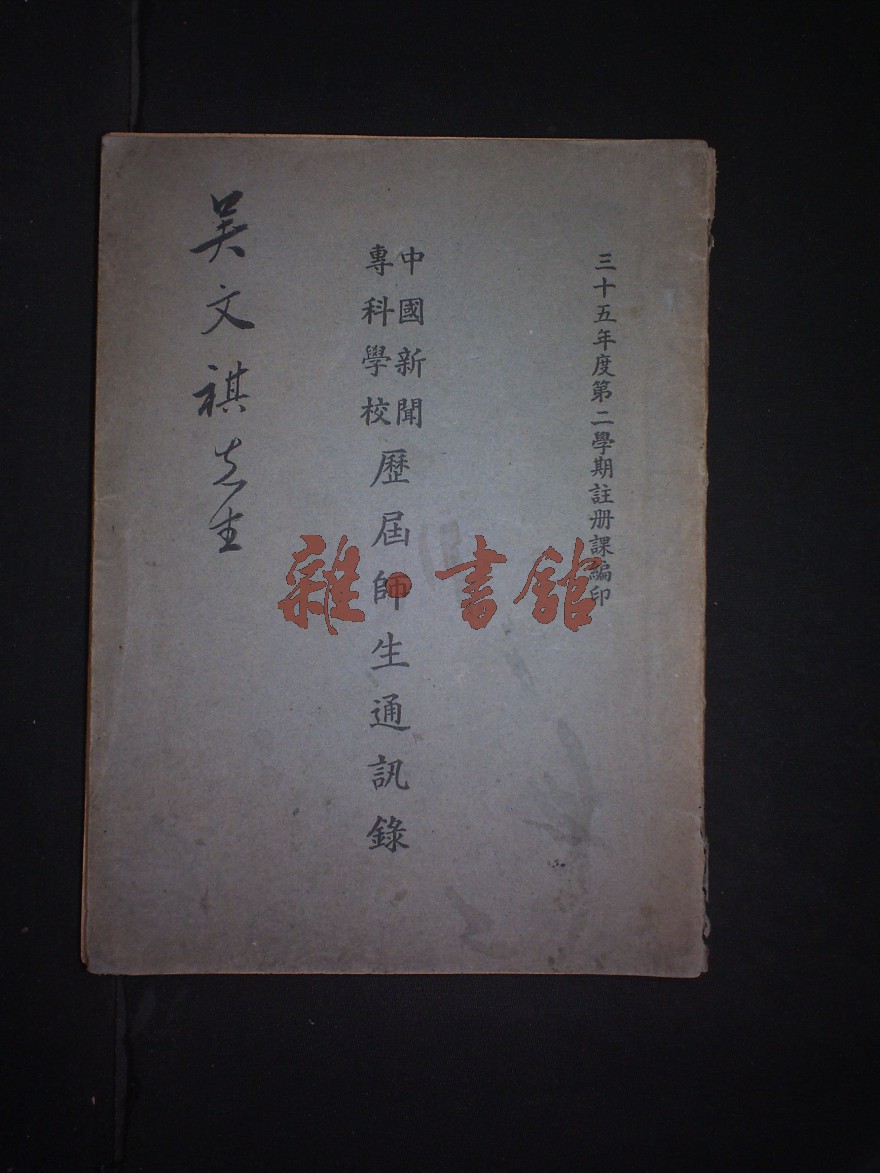 三十五年度第二學期註册課編印
中國新聞
專科學校
歷屆師生通訊錄
吴文祺先生
雜·書館